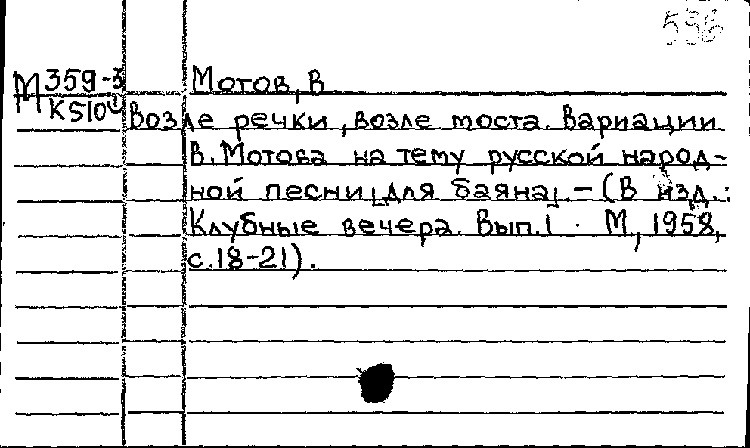 536
М 359-3 Мотов, В
К510
Возле речки, возле моста. Вариации
В. Мотова на тему русской народ-
ной песни [для баяна]. – (В изд.:
Клубные вечера. Вып. 1. М, 1958,
с. 18-21).